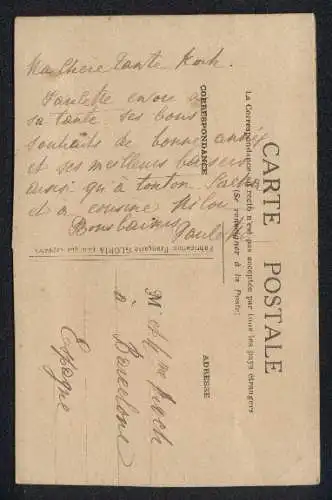 Ma chère Tante
Paulette envoie a
sa tante ses bons
souhaits de bonne année
et ses meilleurs baisers
ainsi qu'à tonton
et à cousine
Bons baisers
Paulette
CARTE POSTALE
La Correspondance au recto n'est pas acceptée par tous les pays étrangers
(Se renseigner à la Poste)
CORRESPONDANCE
ADRESSE
Fabrication Française GLORIA
M et Mme
à Barcelone
Espagne